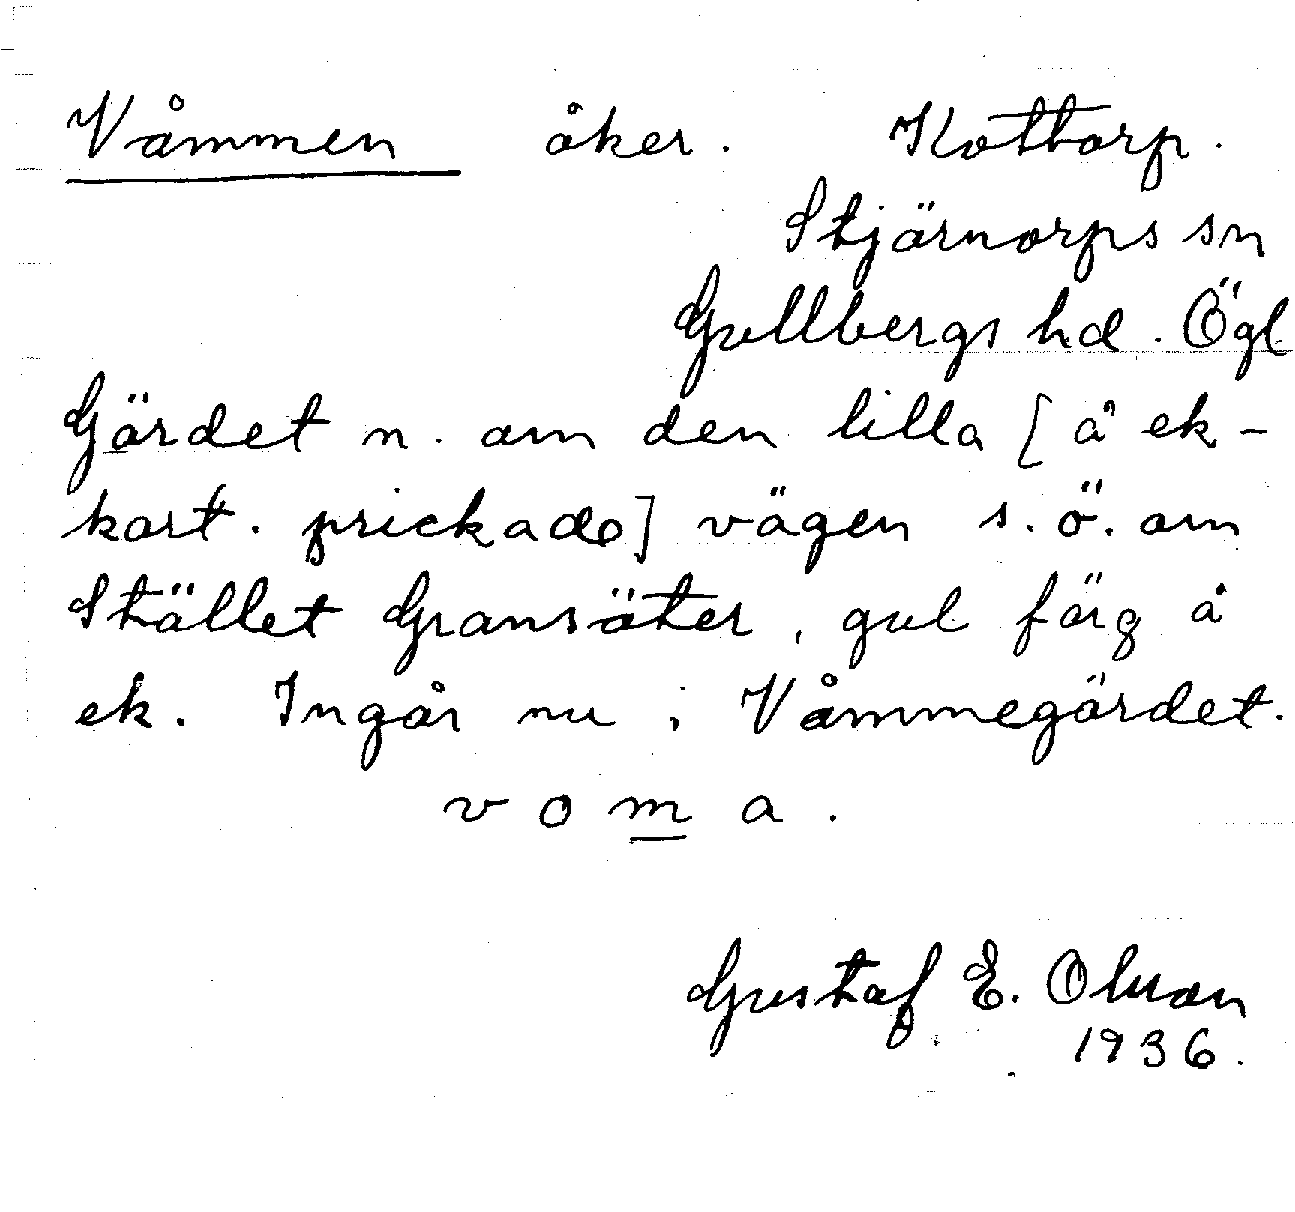 Våmmen åker. Kottorp.
Stjärnorps sn
Gullbergs hd. Ögl
Gärdet n. om den lilla [å ek-
kart. prickade] vägen s.ö. om
Stället Gransäter, gul färg å
ek. Ingår nu i Våmmegärdet.
voma.
Gustaf E. Olsson
1936.